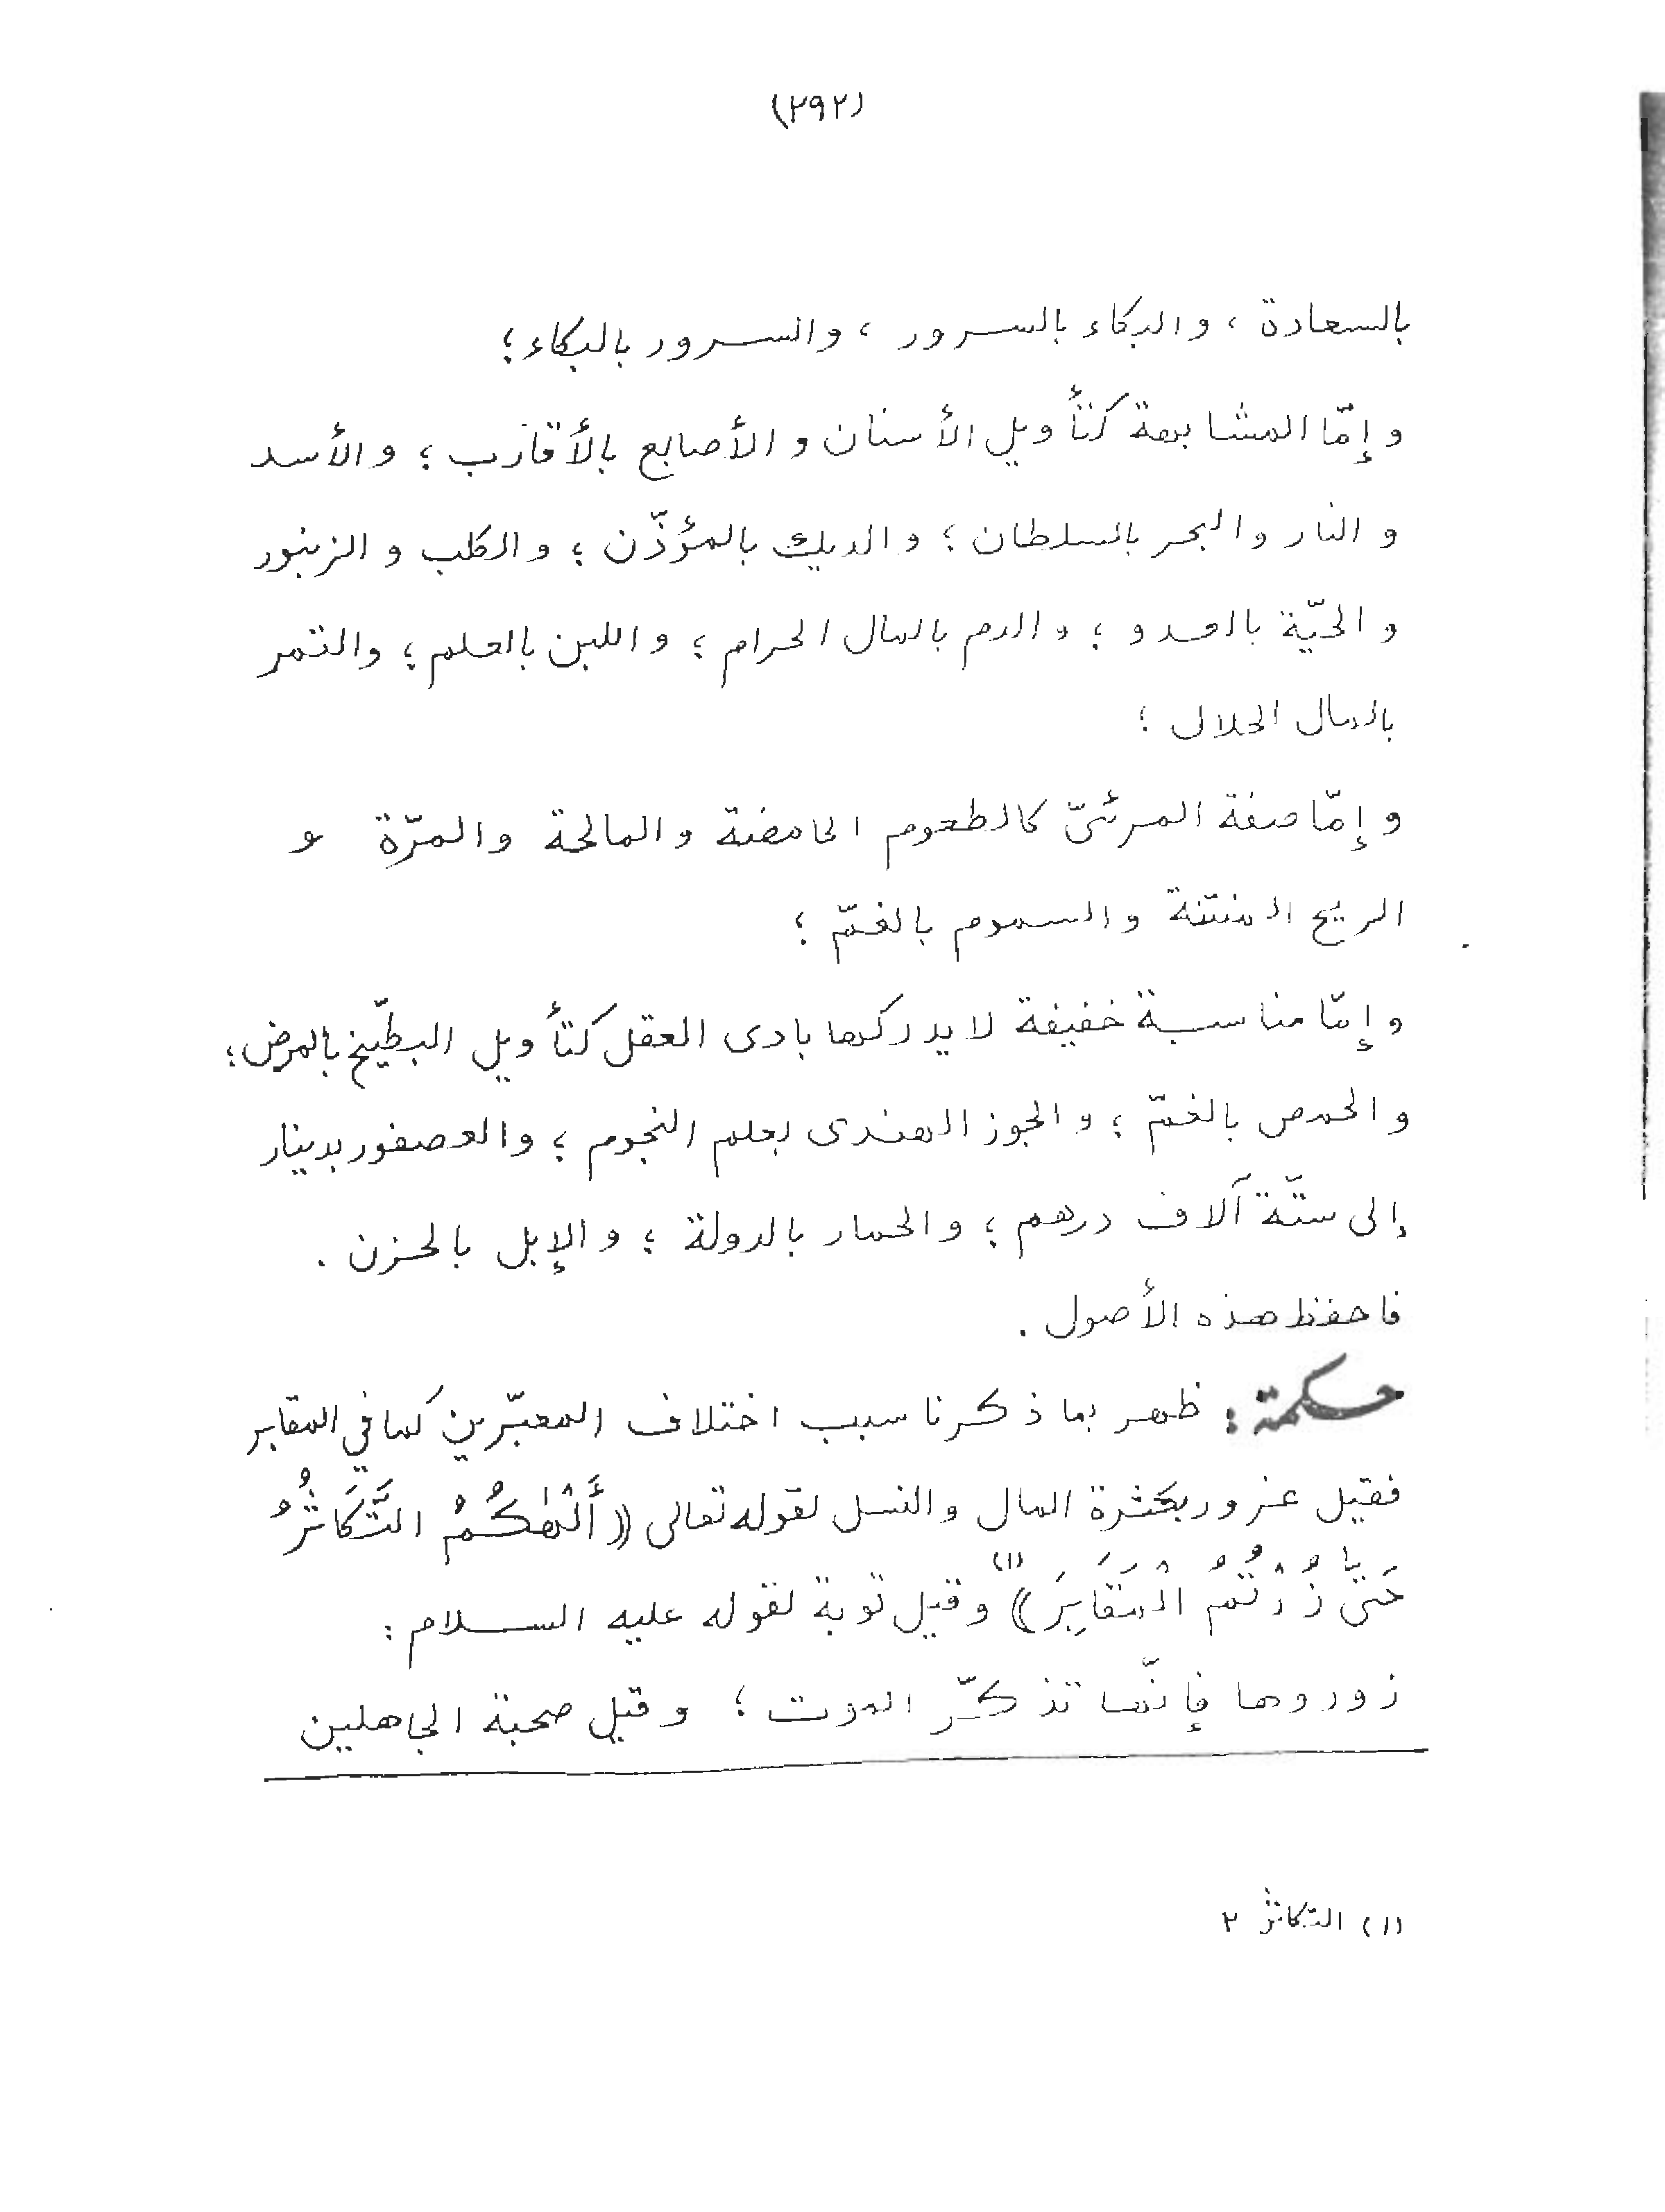 (٢٩٢)
بالسعادة ، والبكاء بالسرور ، والسرور بالبكاء ؛
و إمّا المشابهة كتأويل الأسنان و الأصابع بالأقارب ؛ و الأسد
و النار والبحر بالسلطان ؛ و الديك بالمؤذّن ؛ و الكلب و الزنبور
و الحيّة بالعدو ؛ والدم بالمال الحرام ؛ و اللبن بالعلم ؛ والتمر
بالمال الحلال ؛
و إمّا صفة المرئىّ كالطعوم الحامضة والمالحة والمرّة و
الريح المنتنة والسموم بالغمّ ؛
و إمّا مناسبة خفيفة لا يدركها بادى العقل كتأويل البطّيخ بالمرض ؛
و الحمص بالغمّ ؛ والجوز الهندى بعلم النجوم ؛ والعصفور بدينار
إلى ستّة آلاف درهم ؛ والحمار بالدولة ؛ والإبل بالحزن .
فاحفظ هذه الأصول .
حكمة : ظهر بما ذكرنا سبب اختلاف المعبّرين كما في المقابر
فقيل غرور بكثرة المال والنسل لقوله تعالى (( أَلْهٰكُمُ التَّكَاثُرُ
حَتّٰى زُرْتُمُ الْمَقَابِرَ )) (١) وقيل توبة لقوله عليه السلام :
زوروها فإنّها تذكّر الموت ؛ وقيل صحبة الجاهلين
(١) التكاثر ٢